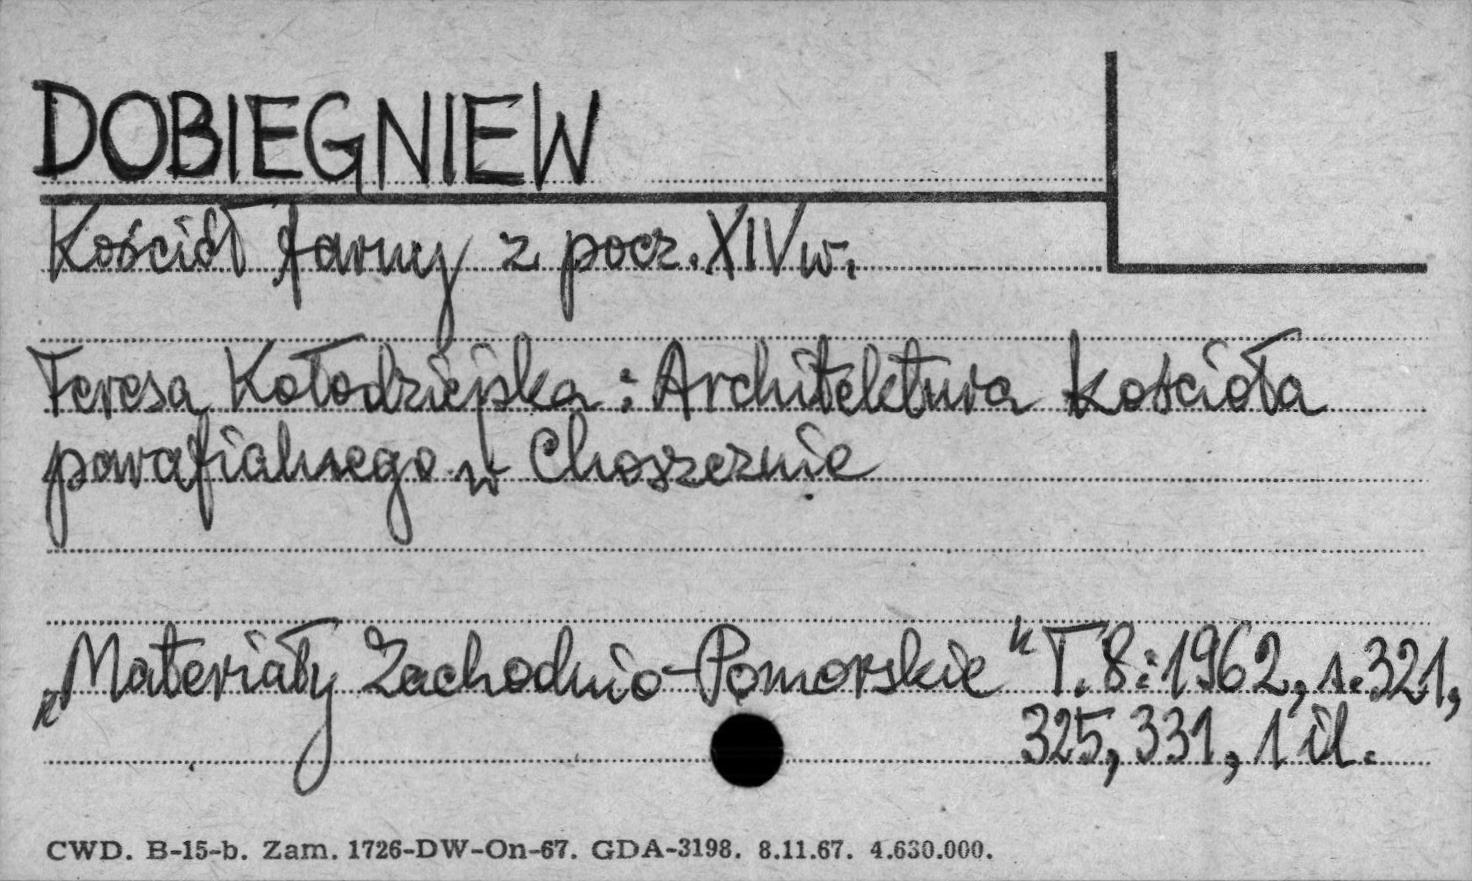 DOBIEGNIEW
Kościół farny z pocz. XIV w.
Teresa Kołodziejska: Architektura kościoła
parafialnego w Choszcznie
„Materiały Zachodnio-Pomorskie" T.8:1962, s.321,
325, 331, 1 il.
CWD. B-15-b. Zam. 1726-DW-On-67. GDA-3198. 8.11.67. 4.630.000.